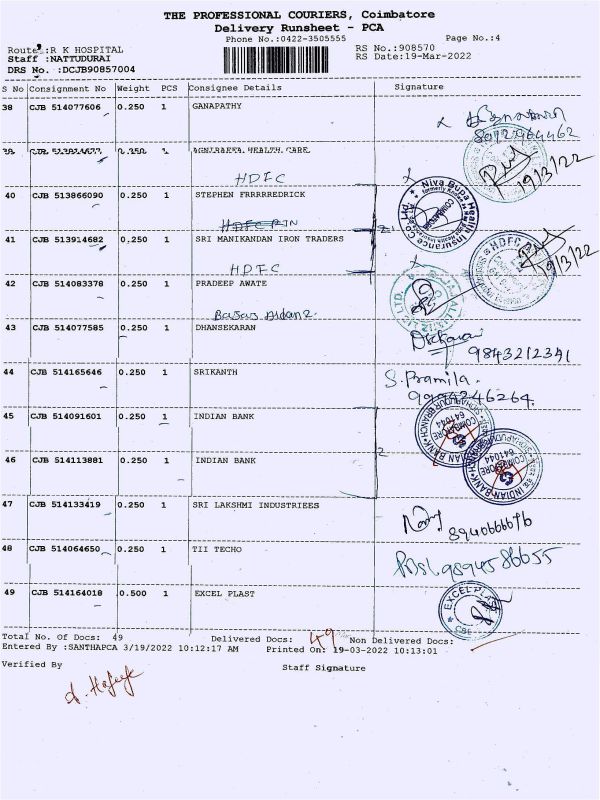 THE PROFESSIONAL COURIERS, Coimbatore
Delivery Runsheet - PCA
Phone No.:0422-3505555 Page No.:4
Route :R K HOSPITAL RS No.:908570
Staff :NATTUDURAI RS Date:19-Mar-2022
DRS No. :DCJB90857004
S No Consignment No Weight PCS Consignee Details Signature
38 CJB 514077606 0.250 1 GANAPATHY
19/3/22
HEALTH CARE
HDFC
40 CJB 513866090 0.250 1 STEPHEN FRRRRREDRICK
Niva Bupa Health Insurance co
41 CJB 513914682 0.250 1 SRI MANIKANDAN IRON TRADERS
HDFC
19/3/22
HDFC
42 CJB 514083378 0.250 1 PRADEEP AWATE
43 CJB 514077585 0.250 1 DHANSEKARAN
9843212391
44 CJB 514165646 0.250 1 SRIKANTH
S. Pramila.
45 CJB 514091601 0.250 1 INDIAN BANK
INDIAN BANK
COIMBATORE
641044
46 CJB 514113881 0.250 1 INDIAN BANK
INDIAN BANK
COIMBATORE
641044
47 CJB 514133419 0.250 1 SRI LAKSHMI INDUSTRIEES
48 CJB 514064650 0.250 1 TII TECHO
9894586655
49 CJB 514164018 0.500 1 EXCEL PLAST
EXCEL PLAST
CBE
Total No. Of Docs: 49 Delivered Docs: 49 Non Delivered Docs:
Entered By :SANTHAPCA 3/19/2022 10:12:17 AM Printed On: 19-03-2022 10:13:01
Verified By Staff Signature